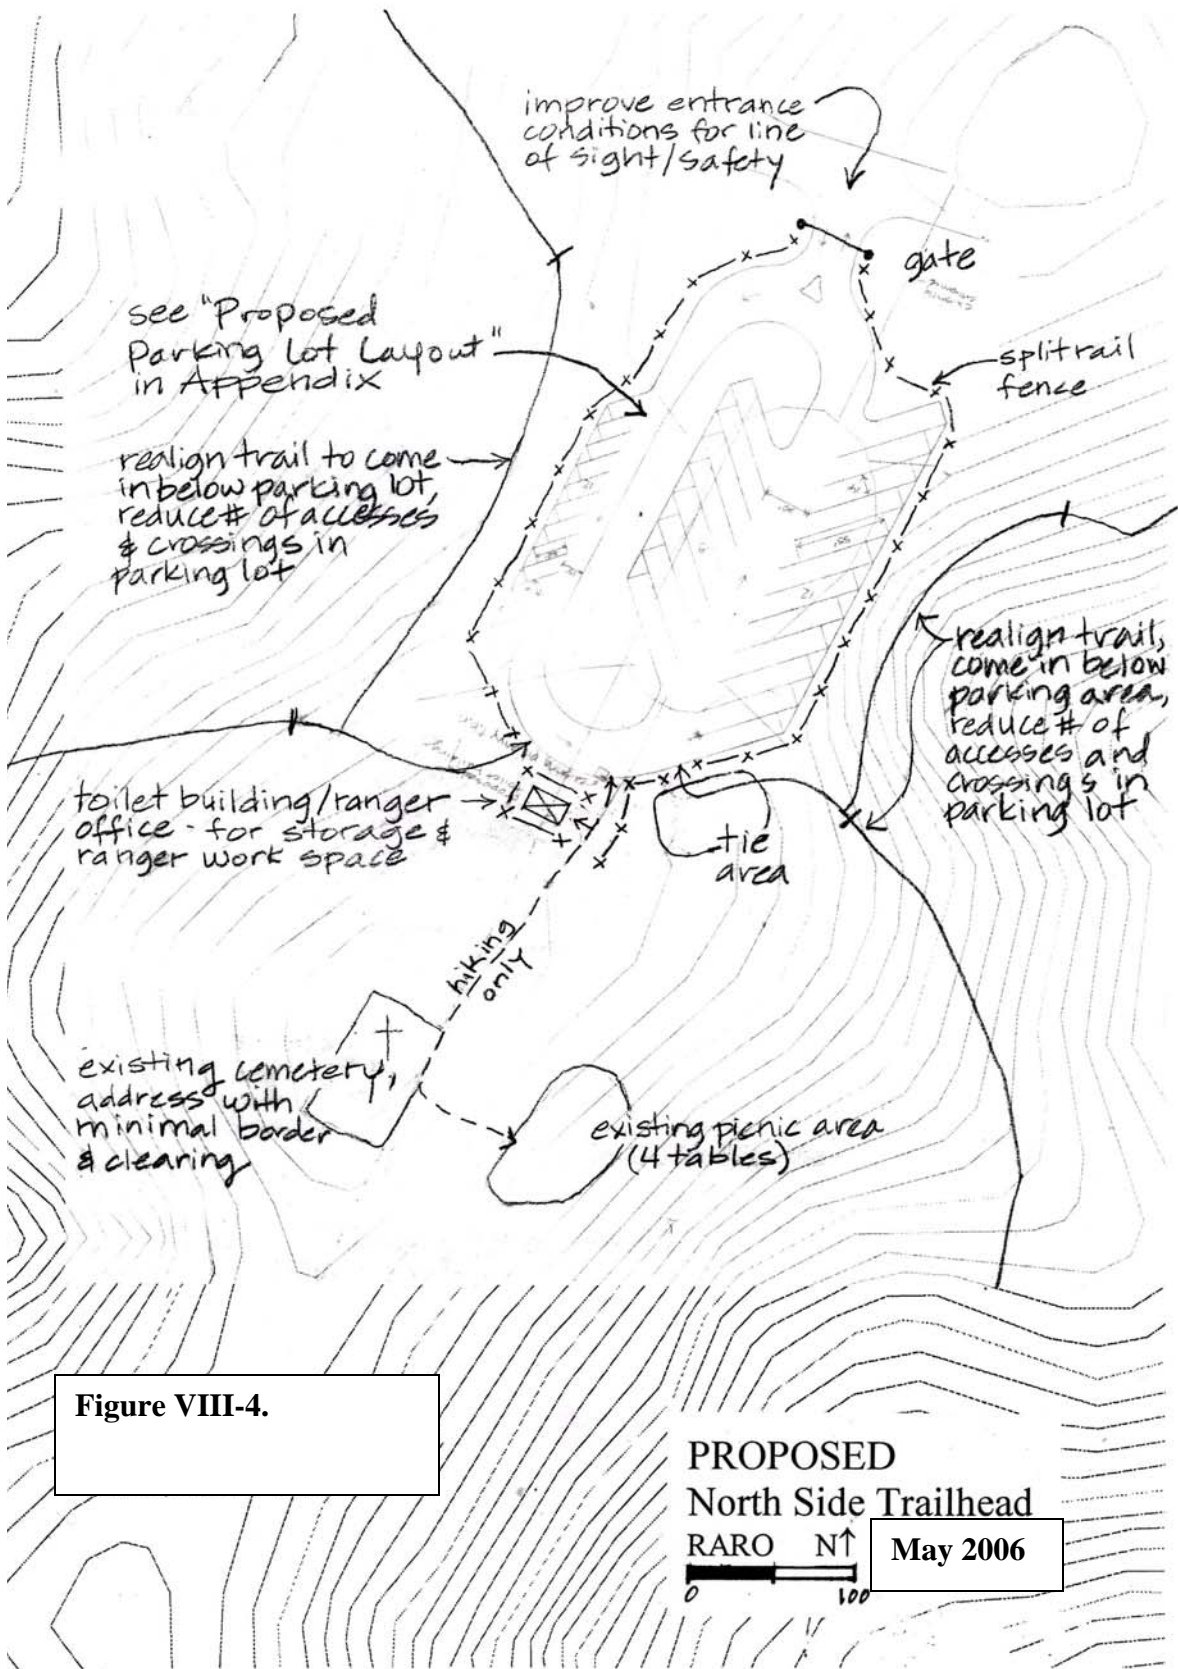 improve entrance
conditions for line
of sight/safety
gate
see "Proposed
Parking Lot Layout"
in Appendix
splitrail
fence
realign trail to come
in below parking lot,
reduce # of accesses
& crossings in
parking lot
realign trail,
come in below
parking area,
reduce # of
accesses and
crossings in
parking lot
toilet building/ranger
office - for storage &
ranger work space
tie
area
hiking
only
existing cemetery,
address with
minimal border
& clearing
existing picnic area
(4 tables)
Figure VIII-4.
PROPOSED
North Side Trailhead
RARO N↑
May 2006
0 100